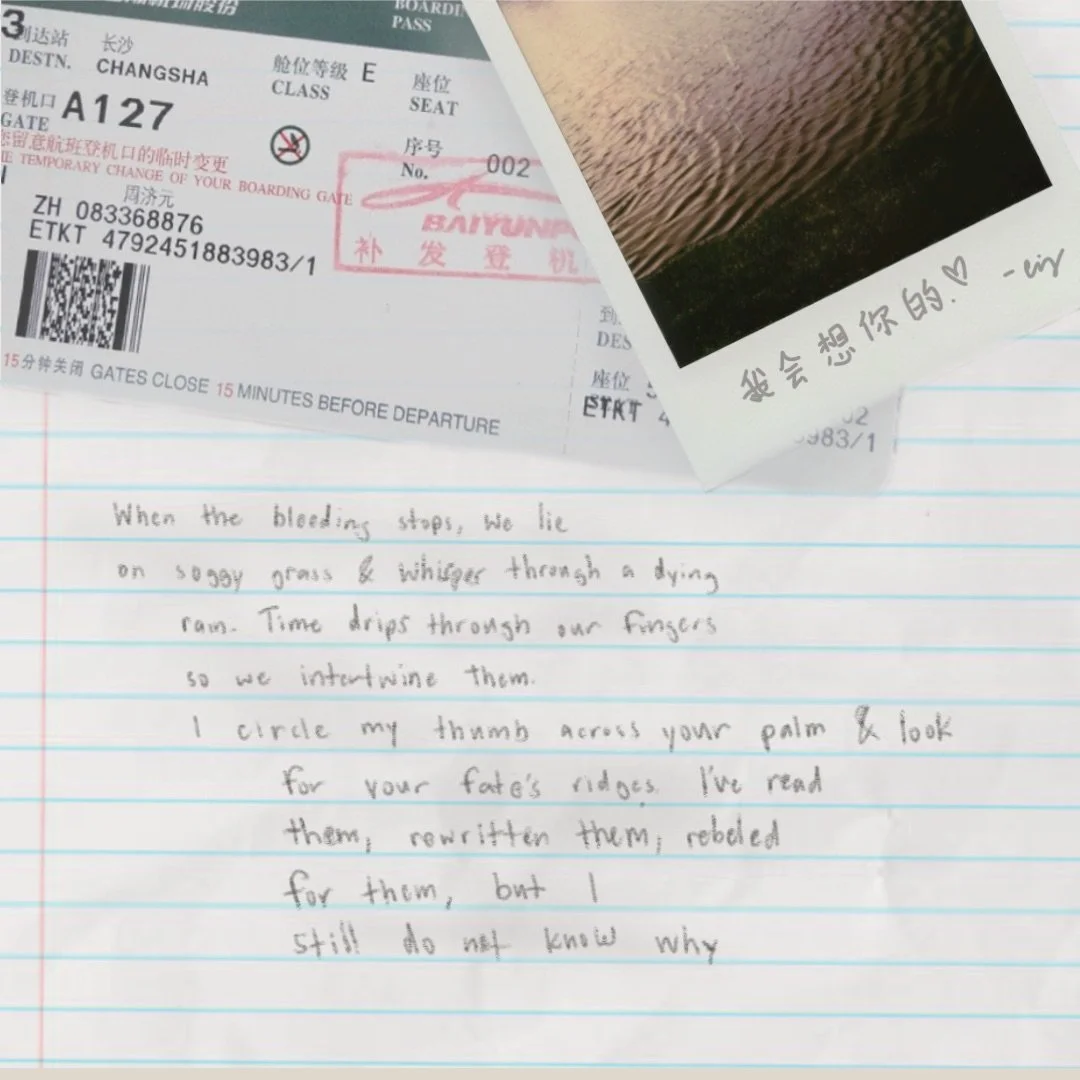 股份
BOARDI
PASS
3
到达站 长沙
DESTN. CHANGSHA
舱位等级 E
CLASS
座位
SEAT
登机口 A127
GATE
留意航班登机口的临时变更
TEMPORARY CHANGE OF YOUR BOARDING GATE
序号
No. 002
周济元
ZH 083368876
ETKT 4792451883983/1
BAIYUNP
补发登机
15分钟关闭 GATES CLOSE 15 MINUTES BEFORE DEPARTURE
到
DES
座位 5
ETKT 4
02
983/1
我会想你的.♡
When the bleeding stops, we lie
on soggy grass & whisper through a dying
rain. Time drips through our fingers
so we intertwine them.
I circle my thumb across your palm & look
for your fate's ridges. I've read
them, rewritten them, rebeled
for them, but I
still do not know why